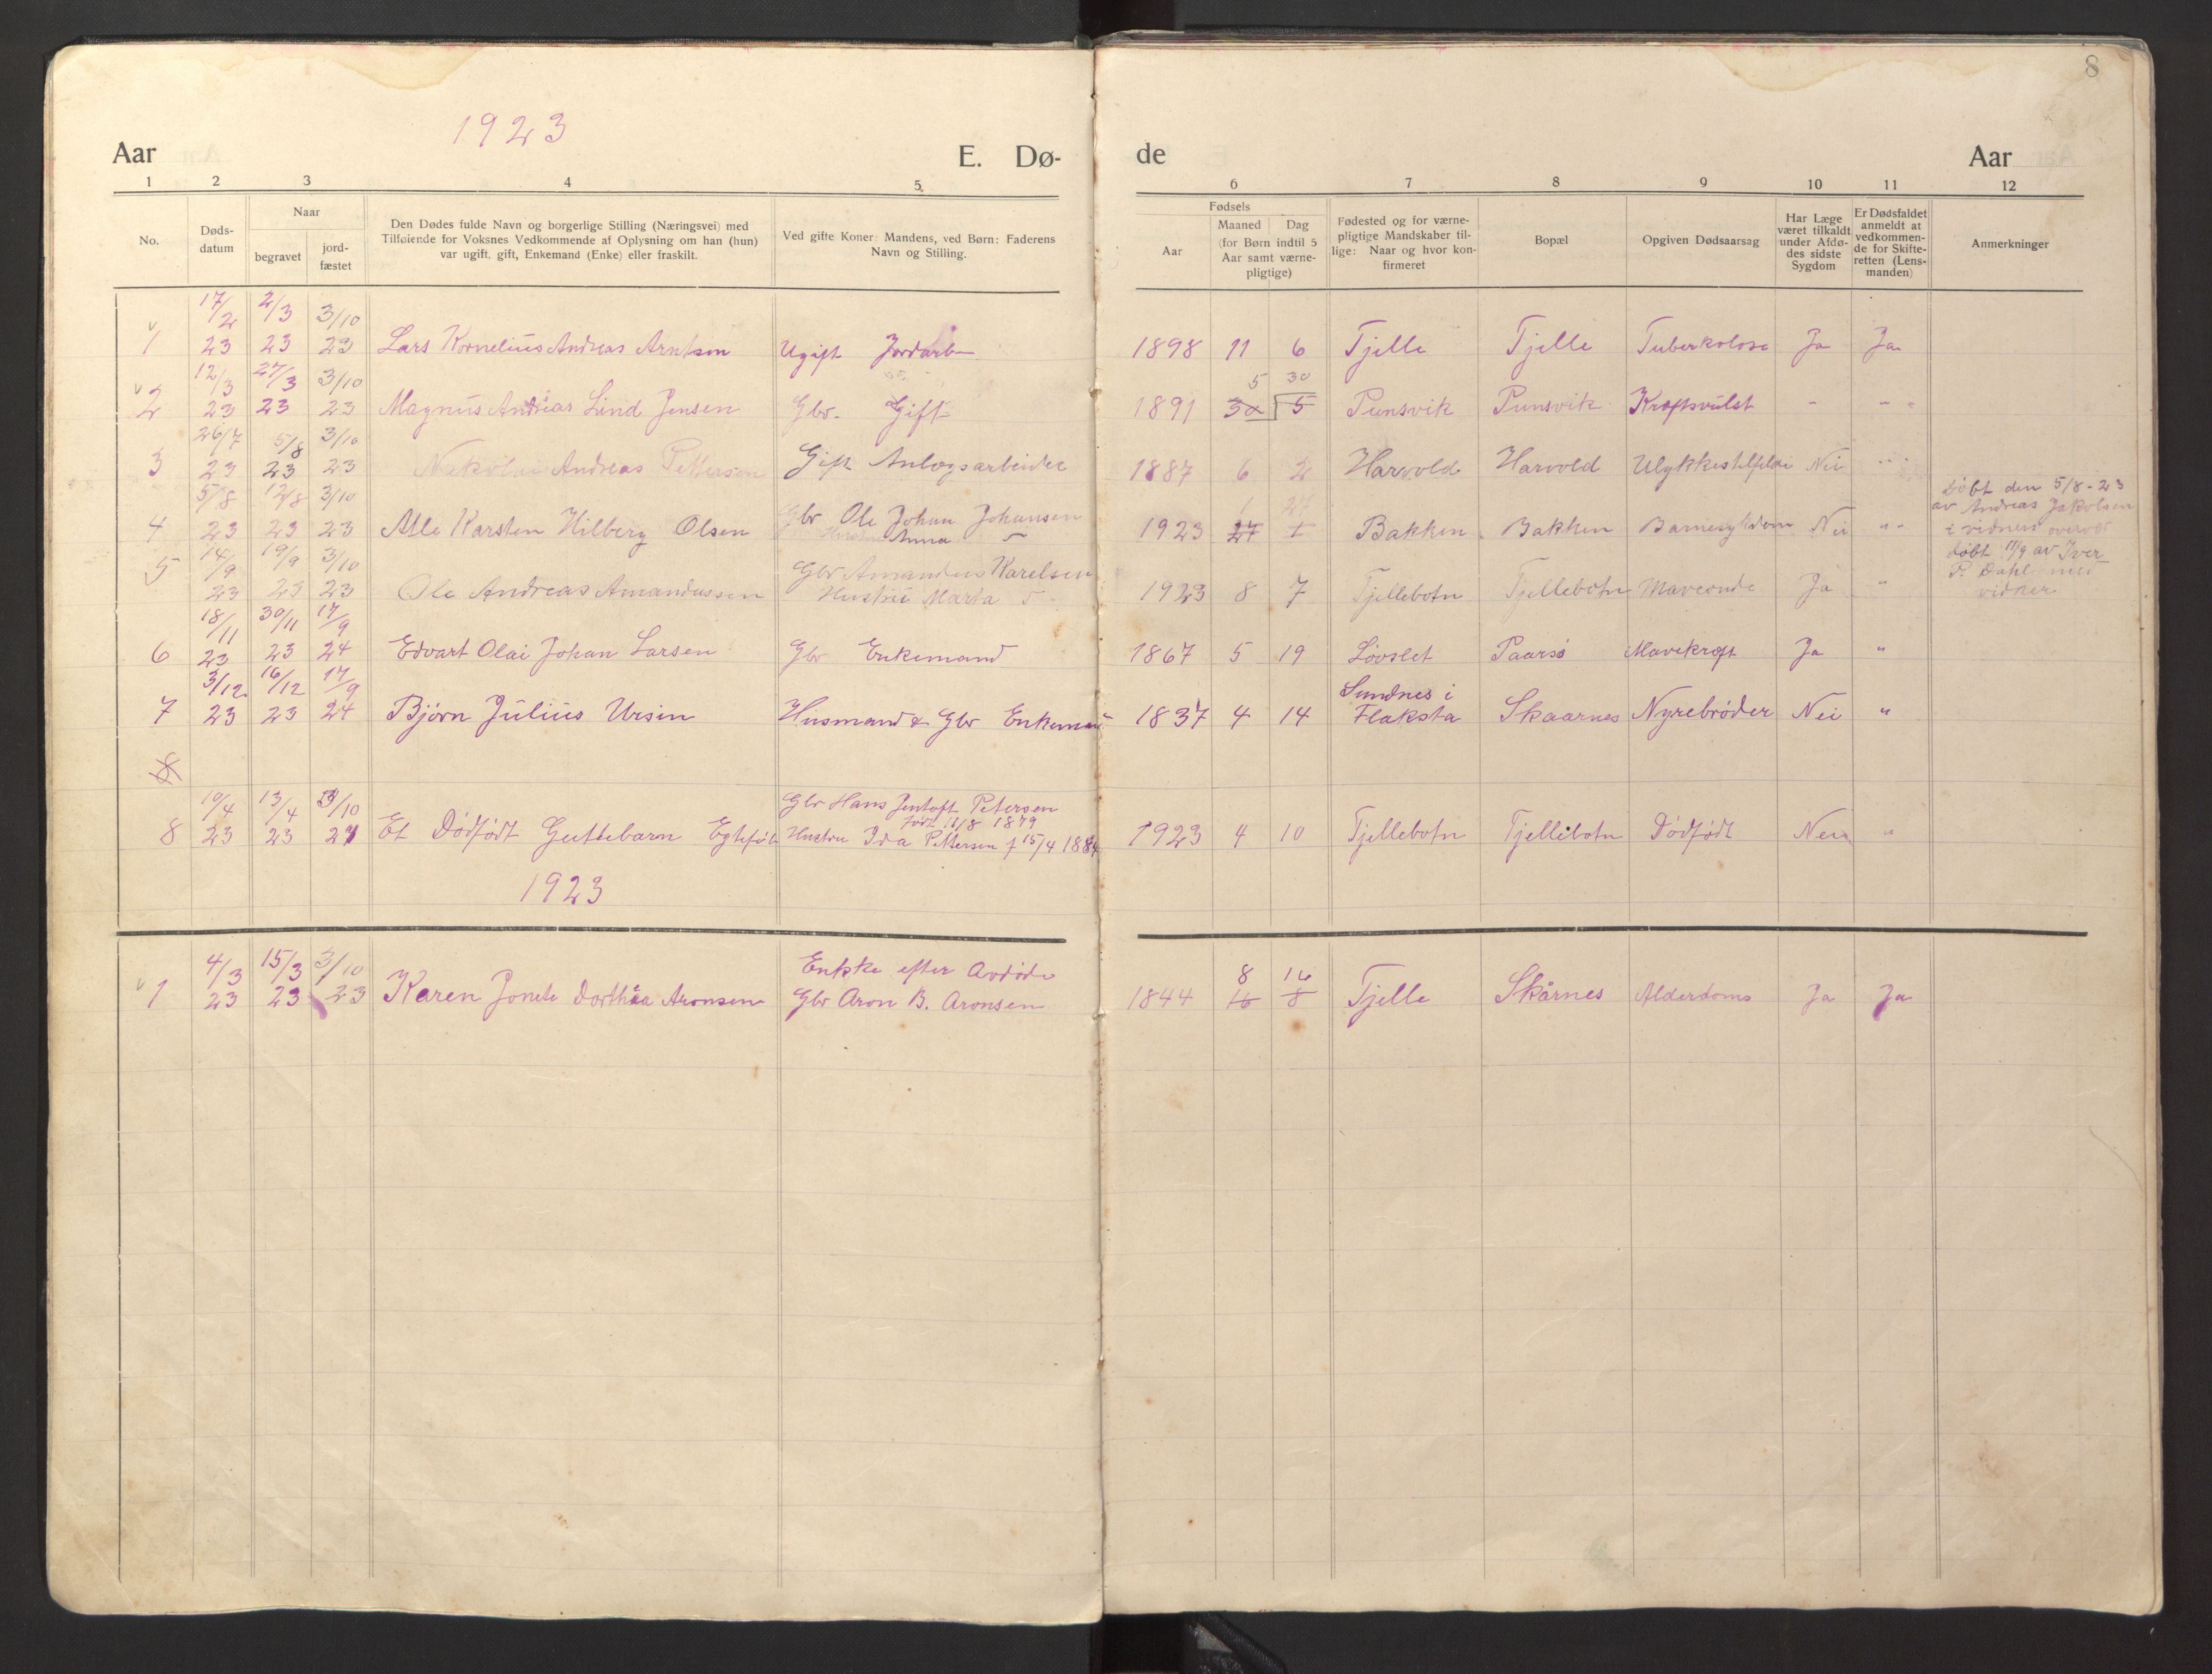 8
1923
Aar E. Dø- de Aar
1 2 3 4 5. 6 7 8 9 10 11 12
No.
Døds-
datum
Naar
begravet
jord-
fæstet
Den Dødes fulde Navn og borgerlige Stilling (Næringsvei) med
Tilføiende for Voksnes Vedkommende af Oplysning om han (hun)
var ugift, gift, Enkemand (Enke) eller fraskilt.
Ved gifte Koner: Mandens, ved Børn: Faderens
Navn og Stilling.
Fødsels
Aar
Maaned Dag
(for Børn indtil 5
Aar samt værne-
pligtige)
Fødested og for værne-
pligtige Mandskaber til-
lige: Naar og hvor kon-
firmeret
Bopæl
Opgiven Dødsaarsag
Har Læge
været tilkaldt
under Afdø-
des sidste
Sygdom
Er Dødsfaldet
anmeldt at
vedkommen-
de for Skifte-
retten (Lens-
manden)
Anmerkninger
17/2 2/3 3/10
1 23 23 23 Lars Kornelius Andreas Arntsen Ugift Jordarb 1898 11 6 Tjelle Tjelle Tuberkolose Ja Ja
12/3 27/3 3/10 5 30
2 23 23 23 Magnus Andreas Lind Jensen Gbr. Gift 1891 30 5 Punsvik Punsvik Kræftsvulst - - -
26/7 5/8 3/10
3 23 23 23 Nekolai Andreas Pettersen Gift Anlægsarbeider 1887 6 2 Harvold Harvold Ulykkestilfelde Nei " "
5/8 12/8 3/10 Gbr Ole Johan Johansen 1 27 Døbt den 5/8-23
av Andreas Jakobsen
4 23 23 23 Atle Karsten Hilberg Olsen Anna 1923 27 1 Bakken Bakken Barnesykdom Nei " " i vidners overvær
14/9 19/9 3/10 Gbr Amandus Karelsen døbt 11/9 av Iver
5 23 23 23 Ole Andreas Amandussen Hustru Marta 1923 8 7 Tjellebotn Tjellebotn Maveonde Ja " P. Dahl med
vidner
18/11 30/11 17/9
6 23 23 24 Edvart Olai Johan Larsen Gbr Enkemand 1867 5 19 Løvslet Paarsø Mavekræft Ja "
3/12 16/12 17/9 Sundnes i
7 23 23 24 Bjørn Julius Ursin Husmand & Gbr Enkeman 1837 4 14 Flaksta Skaarnes Nyrebrøder Nei "
8
10/4 13/4 3/10 Gbr Hans Jentoft Petersen
født 12/8 1879
8 23 23 Et Dødfødt Guttebarn Egtefødt Hustru Ida Pettersen f 15/4 1884 1923 4 10 Tjellebotn Tjellebotn Dødfødt Nei "
1923
4/3 15/3 3/10 Enkke efter Avdøde 8 16
1 23 23 23 Karen Jonete Dorthea Aronsen Gbr Aron B. Aronsen 1844 16 8 Tjelle Skårnes Alderdoms Ja Ja